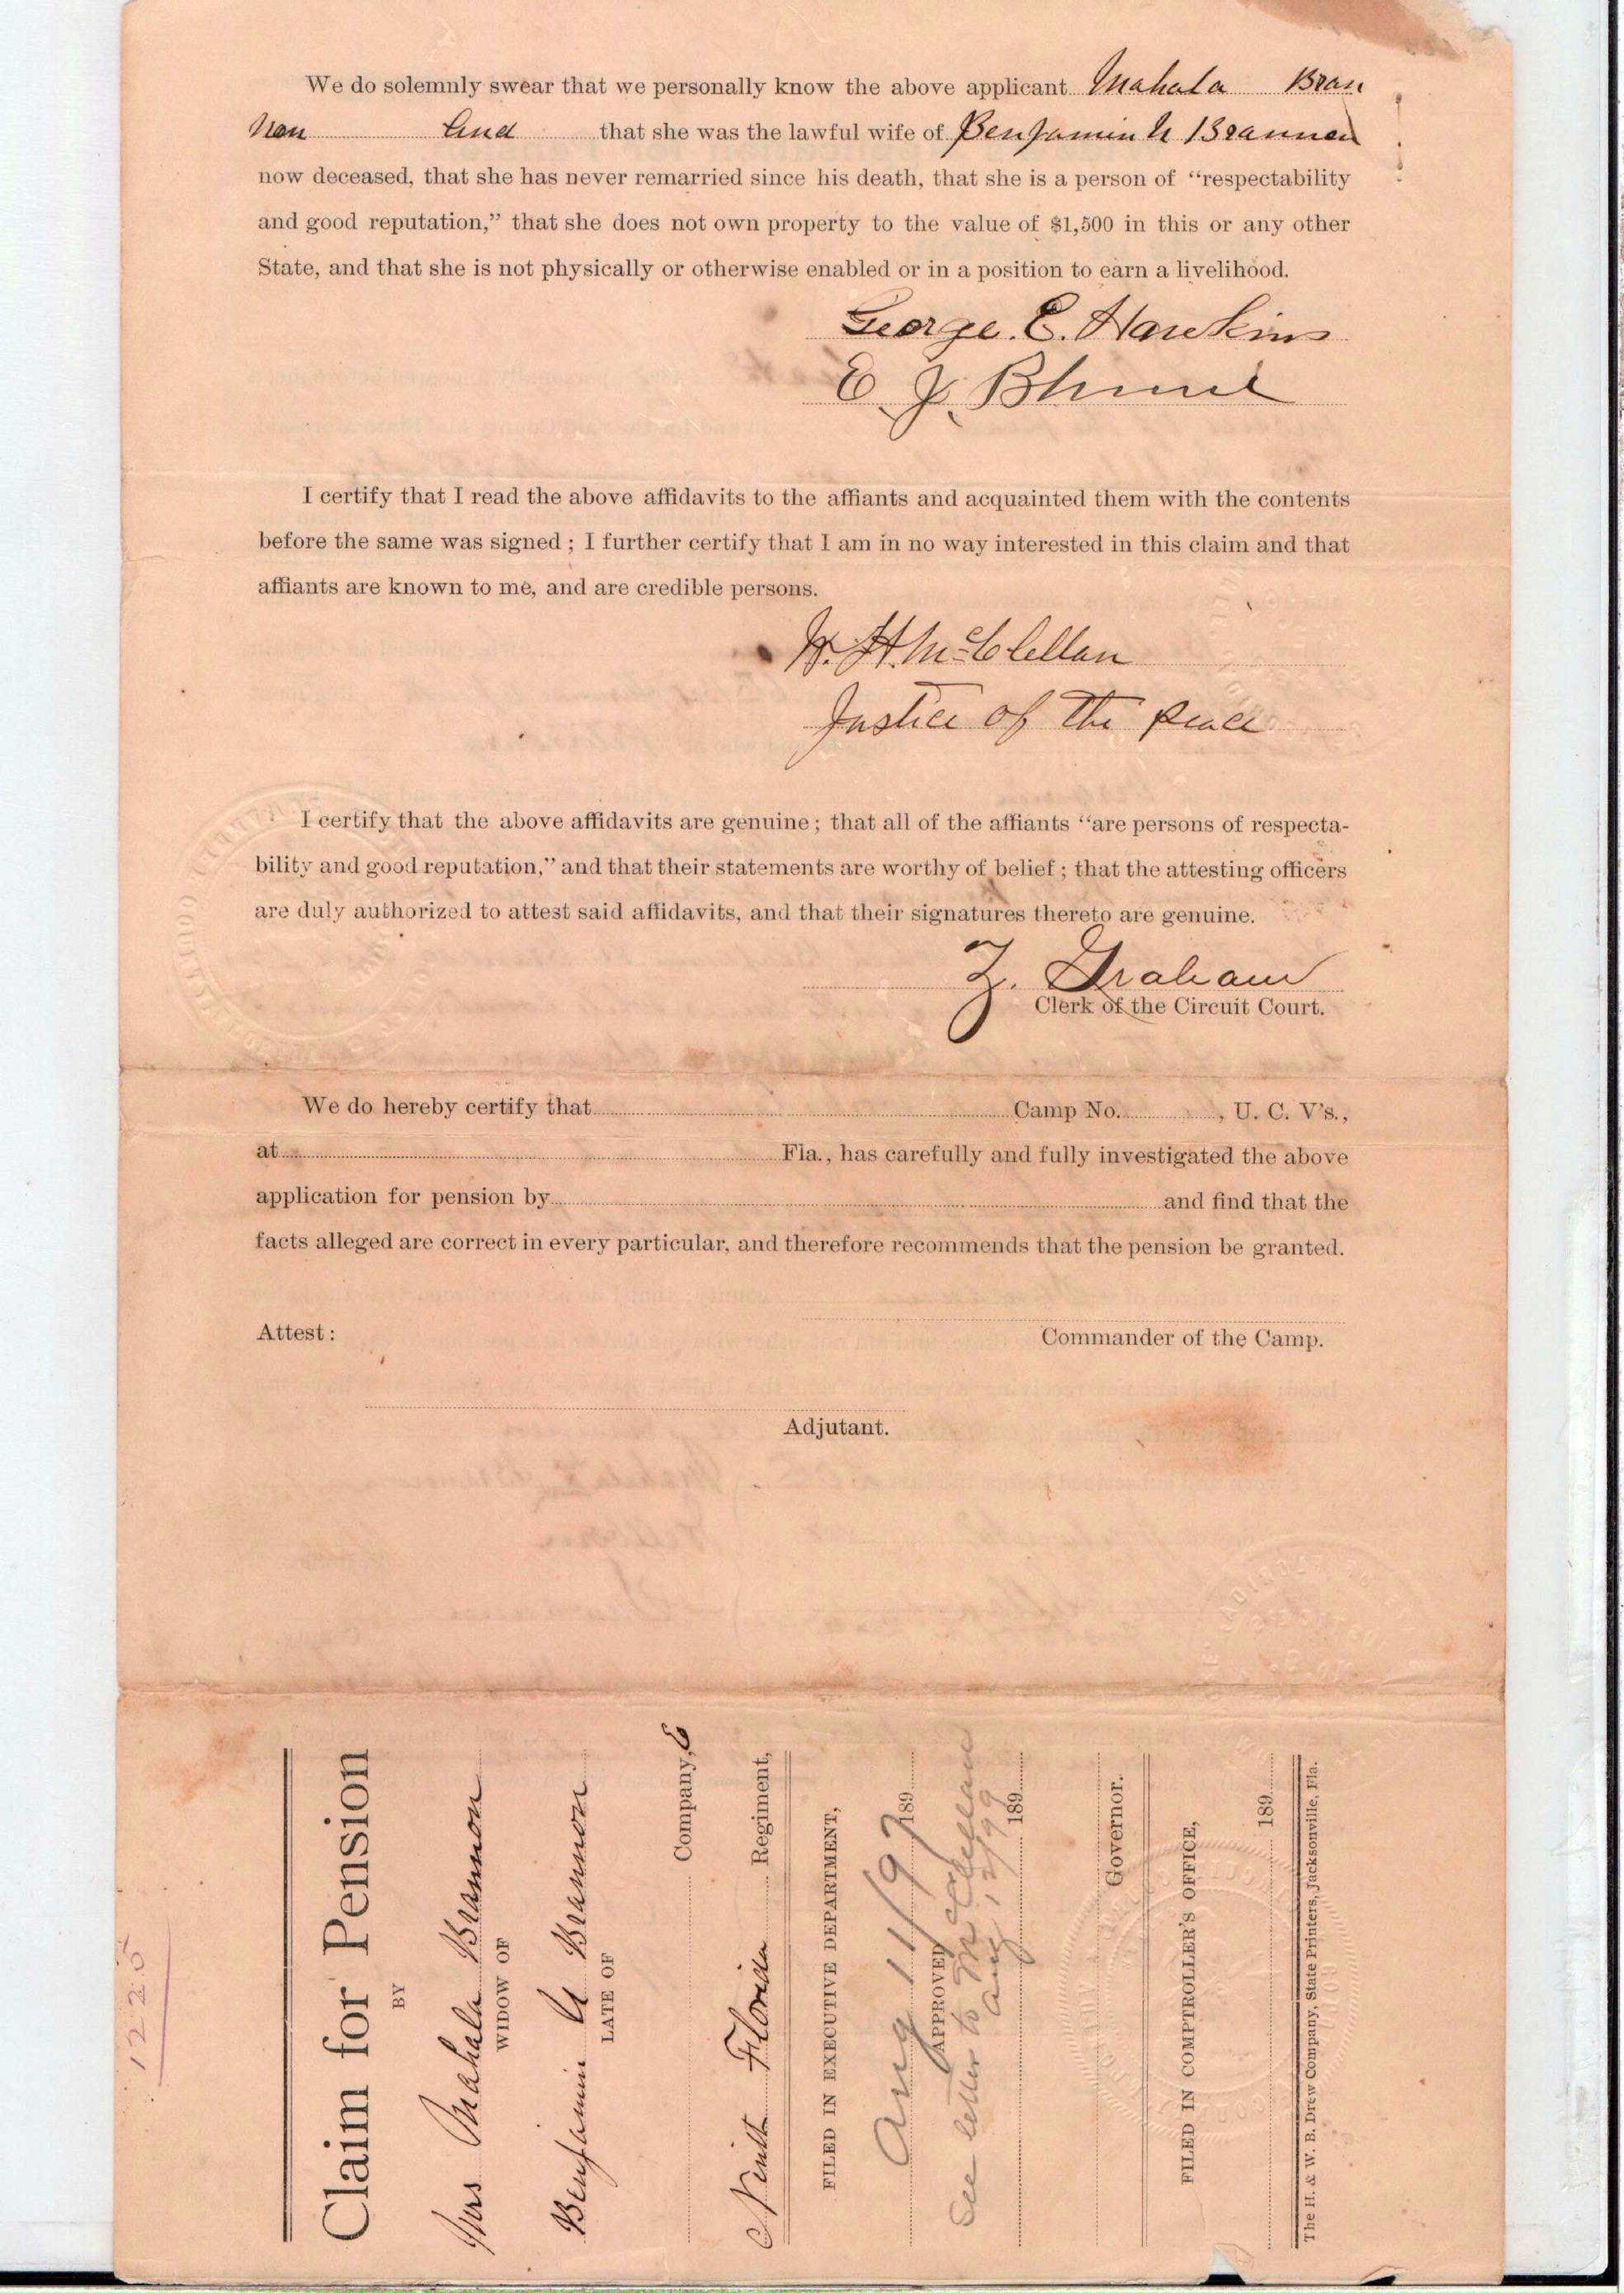 We do solemnly swear that we personally know the above applicant Mahala Bran
non and that she was the lawful wife of Benjamin U Brannon
now deceased, that she has never remarried since his death, that she is a person of “respectability
and good reputation,” that she does not own property to the value of $1,500 in this or any other
State, and that she is not physically or otherwise enabled or in a position to earn a livelihood.
George. E. Hawkins
E. J.
I certify that I read the above affidavits to the affiants and acquainted them with the contents
before the same was signed ; I further certify that I am in no way interested in this claim and that
affiants are known to me, and are credible persons.
W. H. McClellan
Justice of the peace
I certify that the above affidavits are genuine ; that all of the affiants “are persons of respecta-
bility and good reputation,” and that their statements are worthy of belief ; that the attesting officers
are duly authorized to attest said affidavits, and that their signatures thereto are genuine.
Z. Graham
Clerk of the Circuit Court.
We do hereby certify that Camp No. , U. C. V's.,
at Fla., has carefully and fully investigated the above
application for pension by and find that the
facts alleged are correct in every particular, and therefore recommends that the pension be granted.
Attest : Commander of the Camp.
Adjutant.
1225
Claim for Pension
BY
Mrs Mahala Brannon
WIDOW OF
Benjamin U Brannon
LATE OF
Company, E
Ninth Florida Regiment,
FILED IN EXECUTIVE DEPARTMENT,
Aug 11/97 189
APPROVED
See letter to McClellan
Aug 12/99 189
Governor.
FILED IN COMPTROLLER'S OFFICE,
189
The H. & W. B. Drew Company, State Printers, Jacksonville, Fla.